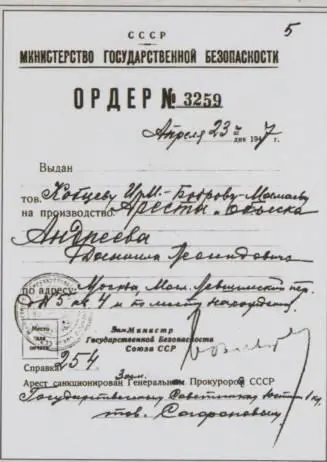 5
СССР
МИНИСТЕРСТВО ГОСУДАРСТВЕННОЙ БЕЗОПАСНОСТИ
ОРДЕР № 3259
Апреля 23 дня 1947 г.
Выдан
тов. Кобцеву
на производство: Ареста и Обыска
Андреева
Даниила Леонидовича
по адресу: Москва, Мал. Левшинский пер.
д № 5 кв 4 и по месту нахождения
Место
для
печати
Зам Министр
Государственной Безопасности
Союза ССР
Справка 254
Зам.
Арест санкционирован Генеральным Прокурором СССР
Государственным Советником Юстиции 1 кл
тов. Сафоновым